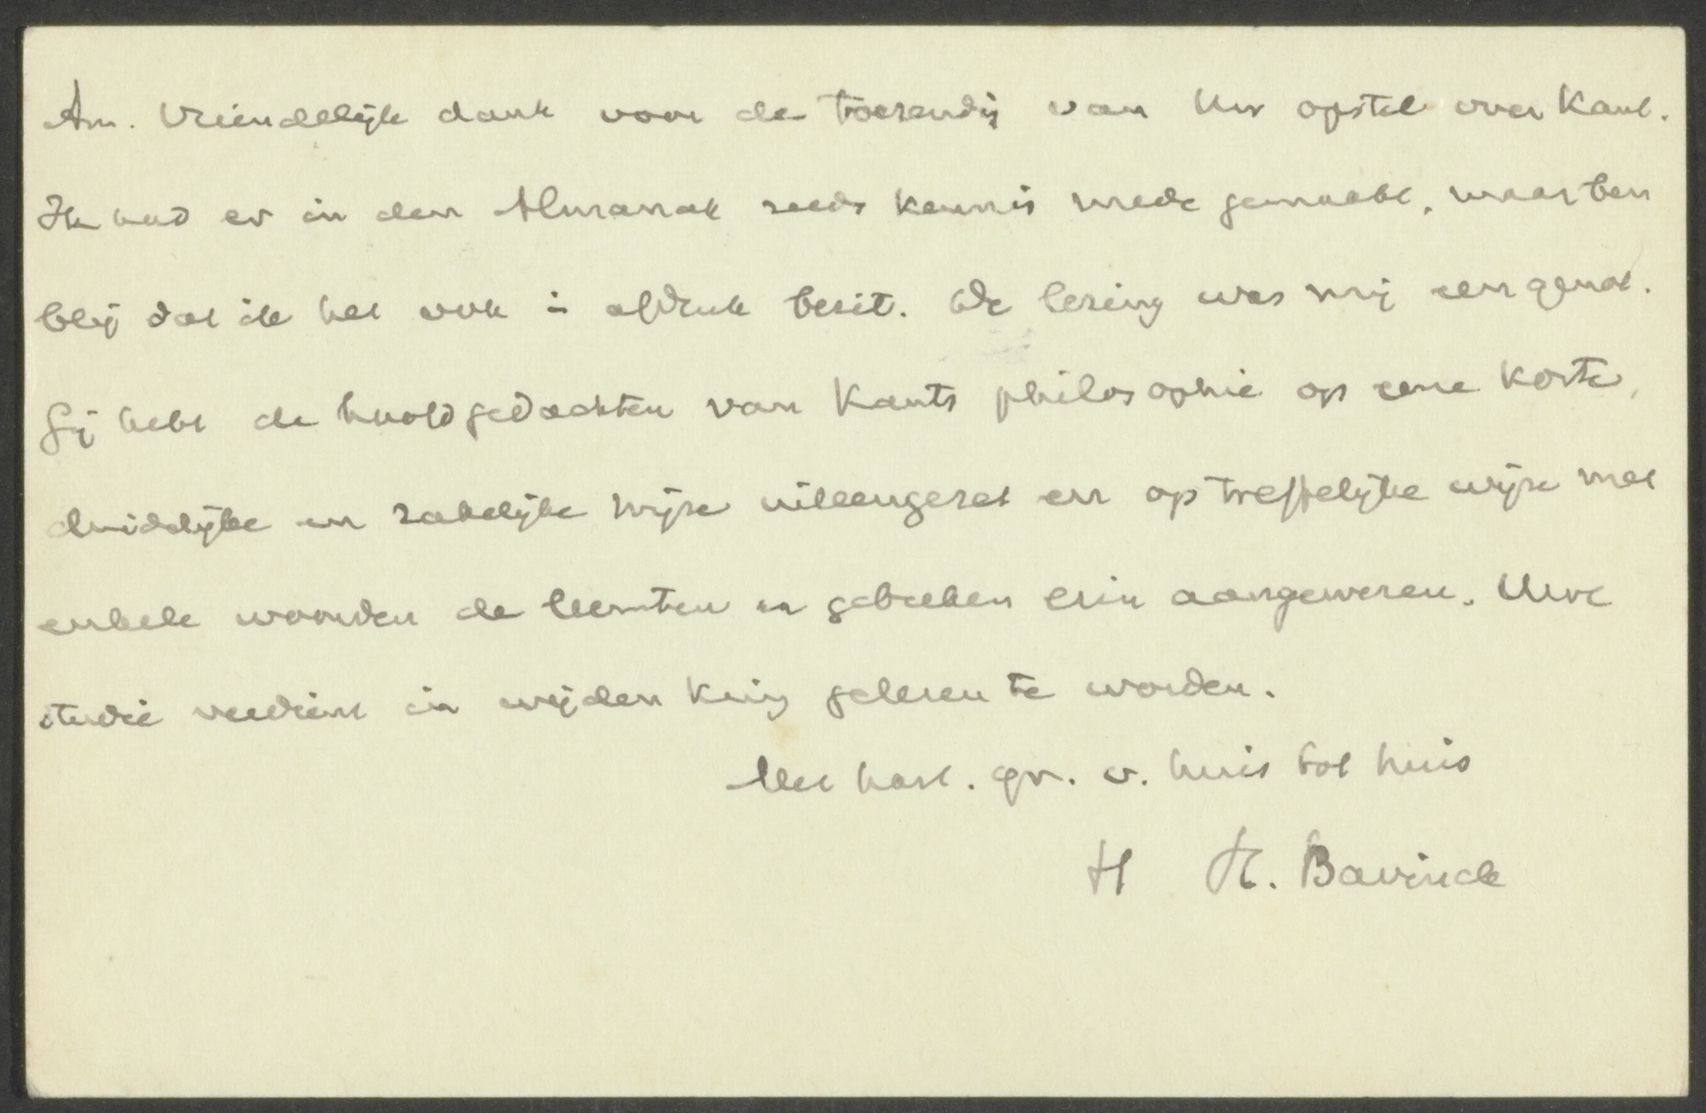 Am. Vriendelijk dank voor de toezendg van Uw opstel over Kant.
Ik had er in den Almanak reeds kennis mede gemaakt, maar ben
blij dat ik het ook in afdruk bezit. De lezing was mij een genot.
Gij hebt de hoofdgedachten van Kants philosophie op eene korte,
duidelijke en zakelijke wijze uiteengezet en op treffelijke wijze met
enkele woorden de leemten en gebreken erin aangewezen. Uwe
studie verdient in wijden kring gelezen te worden.
Met hart. gr. v. huis tot huis
H. Bavinck